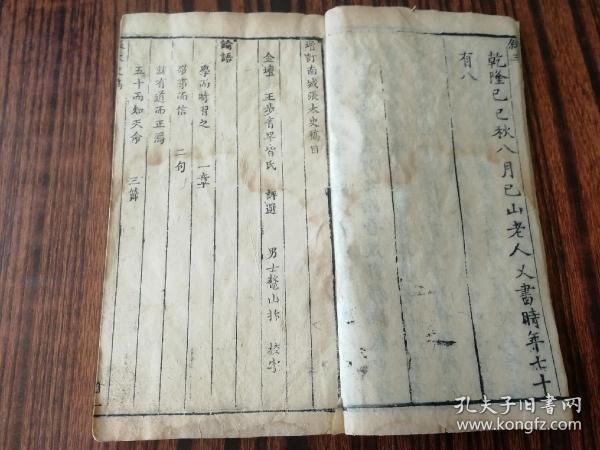 乾隆己巳秋八月已山老人又書時年七十
有八
增訂南城張太史稿目
金壇 王步青罕皆氏 評選 男士鼇山
論語
學而時習之 一章
敬事而信 二句
就有道而正焉
五十而知天命 三節
孔夫子旧书网
www.kongfz.com